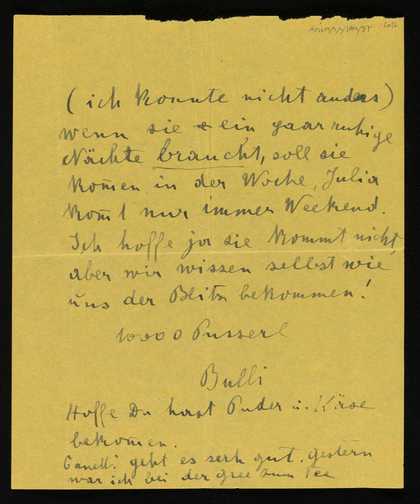 (ich konnte nicht anders)
wenn sie ein paar ruhige
Nächte braucht, soll sie
kom̄en in der Woche, Julia
kom̄t nur immer Weekend.
Ich hoffe ja sie kommt nicht,
aber wir wissen selbst wie
uns der Blitz bekommen!
10000 Pusserl
Bulli
Hoffe Du hast Puder u. Käse
bekom̄en.
geht es sehr gut. gestern
war ich bei der zum Tee